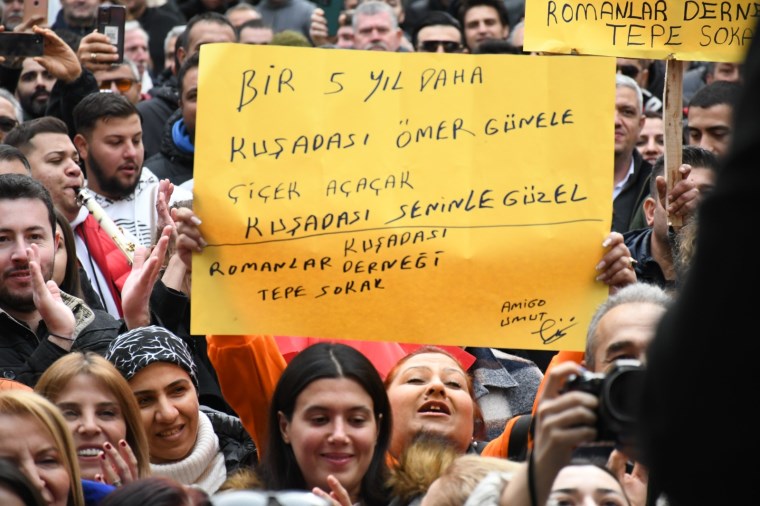 BİR 5 YIL DAHA
KUŞADASI ÖMER GÜNELE
ÇİÇEK AÇAÇAK
KUŞADASI SENİNLE GÜZEL
KUŞADASI
ROMANLAR DERNEĞİ
TEPE SOKAK
AMİGO
UMUT
ROMANLAR DERNE
TEPE SOKA